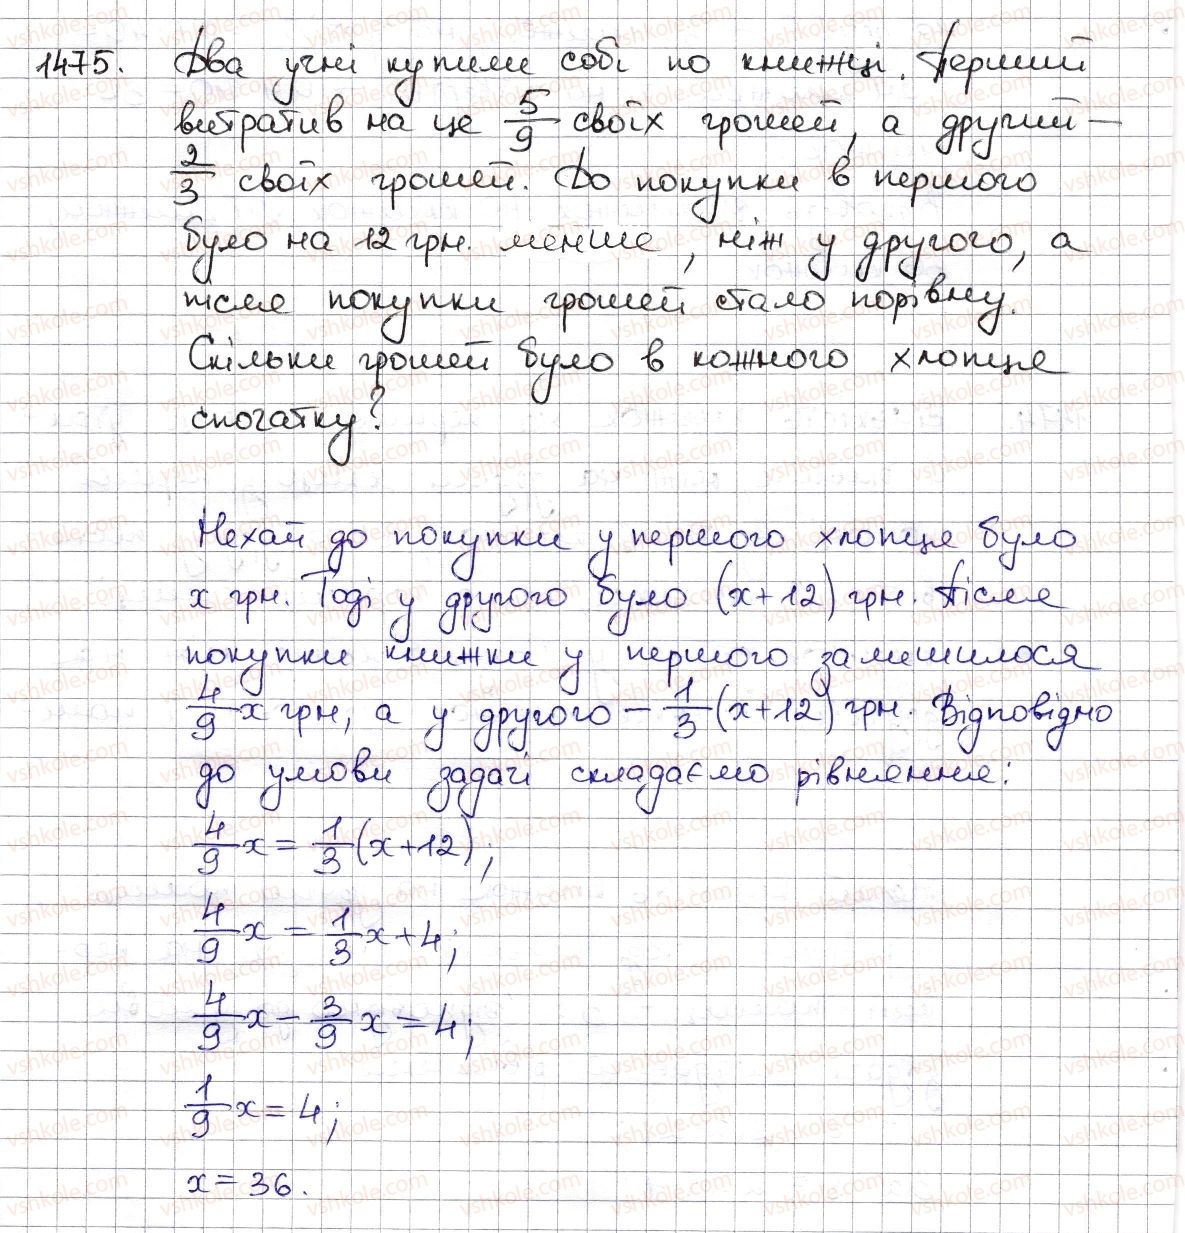 1475. Два учні купили собі по книжці. Перший
витратив на це 5/9 своїх грошей, а другий —
2/3 своїх грошей. До покупки в першого
було на 12 грн. менше, ніж у другого, а
після покупки грошей стало порівну.
Скільки грошей було в кожного хлопця
спочатку?
Нехай до покупки у першого хлопця було
x грн. Тоді у другого було (x+12) грн. Після
покупки книжки у першого залишилося
4/9 x грн, а у другого – 1/3 (x+12) грн. Відповідно
до умови задачі складаємо рівняння:
4/9 x = 1/3 (x+12);
4/9 x = 1/3 x + 4;
4/9 x – 3/9 x = 4;
1/9 x = 4;
x = 36.